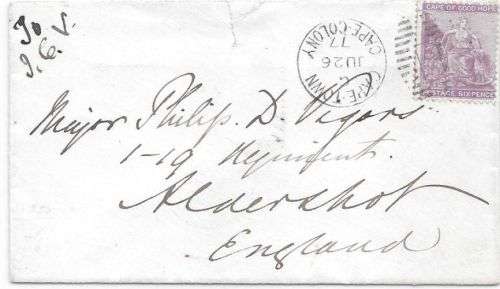 To
J.C.V.
CAPE OF GOOD HOPE
POSTAGE SIXPENCE
CAPE TOWN
C
JU 26
77
CAPE COLONY
Major Philip. D. Vigors.
1-19 Regiment.
Aldershot
England